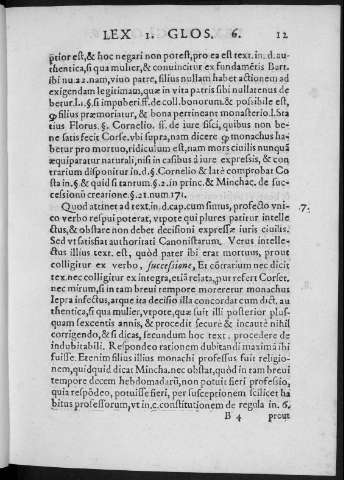 LEX 1. GLOS. 6. 12
ptior est, & hoc negari non potest, pro ea est text. in. d. au-
thentica, si qua mulier, & conuincitur ex fundamētis Bart.
ibi nu. 22. nam, viuo patre, filius nullam habet actionem ad
exigendam legitimam, quæ in vita patris sibi nullatenus de
betur. l. 1. §. si impuberi ff. de coll. bonorum. & possibile est,
q filius præmoriatur, & bona pertineant monasterio. l. Sta
tius Florus. §. Cornelio. ff. de iure fisci, quibus non be
ne satis fecit Corse. vbi supra, nam dicere q monachus ha
betur pro mortuo, ridiculum est, nam mors ciuilis nunquā
æquiparatur naturali, nisi in casibus à iure expressis, & con
trarium disponitur in. d. §. Cornelio & latè comprobat Co
sta in. §. & quid si tantum. §. 2. in princ. & Minchac. de suc-
cessionū creatione. §. 21. num 171.
Quod attinet ad text. in. d. cap. cum simus, profecto vni-
co verbo respui poterat, vtpote qui plures patitur intelle
ctus, & obstare non debet decisioni expressæ iuris ciuilis.
Sed vt satisfiat authoritati Canonistarum. Verus intelle-
ctus illius text. est, quòd pater ibi erat mortuus, prout
colligitur ex verbo, successione, Et cōtrarium nec dicit
tex. nec colligitur ex integra, etiā relata, put refert Corset.
nec mirum, si in tam breui tempore moreretur monachus
lepra infectus, atque ita decisio illa concordat cum dict. au
thentica, si qua mulier, vtpote, quæ fuit illi posterior plus-
quam sexcentis annis, & procedit securè & incautè nihil
corrigendo, & si dicas, secundum hoc text. procedere de
indubitabili. Respondeo rationem dubitandi maximā ibi
fuisse. Etenim filius illius monachi professus fuit religio-
nem, quidquid dicat Mincha. nec obstat, quòd in tam breui
tempore decem hebdomadarū, non potuit fieri professio,
quia respōdeo, potuisse fieri, per susceptionem scilicet ha
bitus professorum, vt in. c. constitutionem de regula in. 6.
B 4 prout
.7.